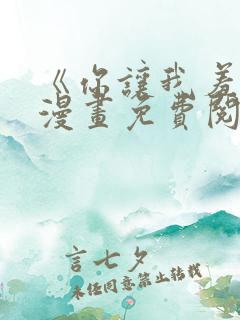 《你讓我羞
漫畫免費閱
言七夕
未經同意禁止轉載